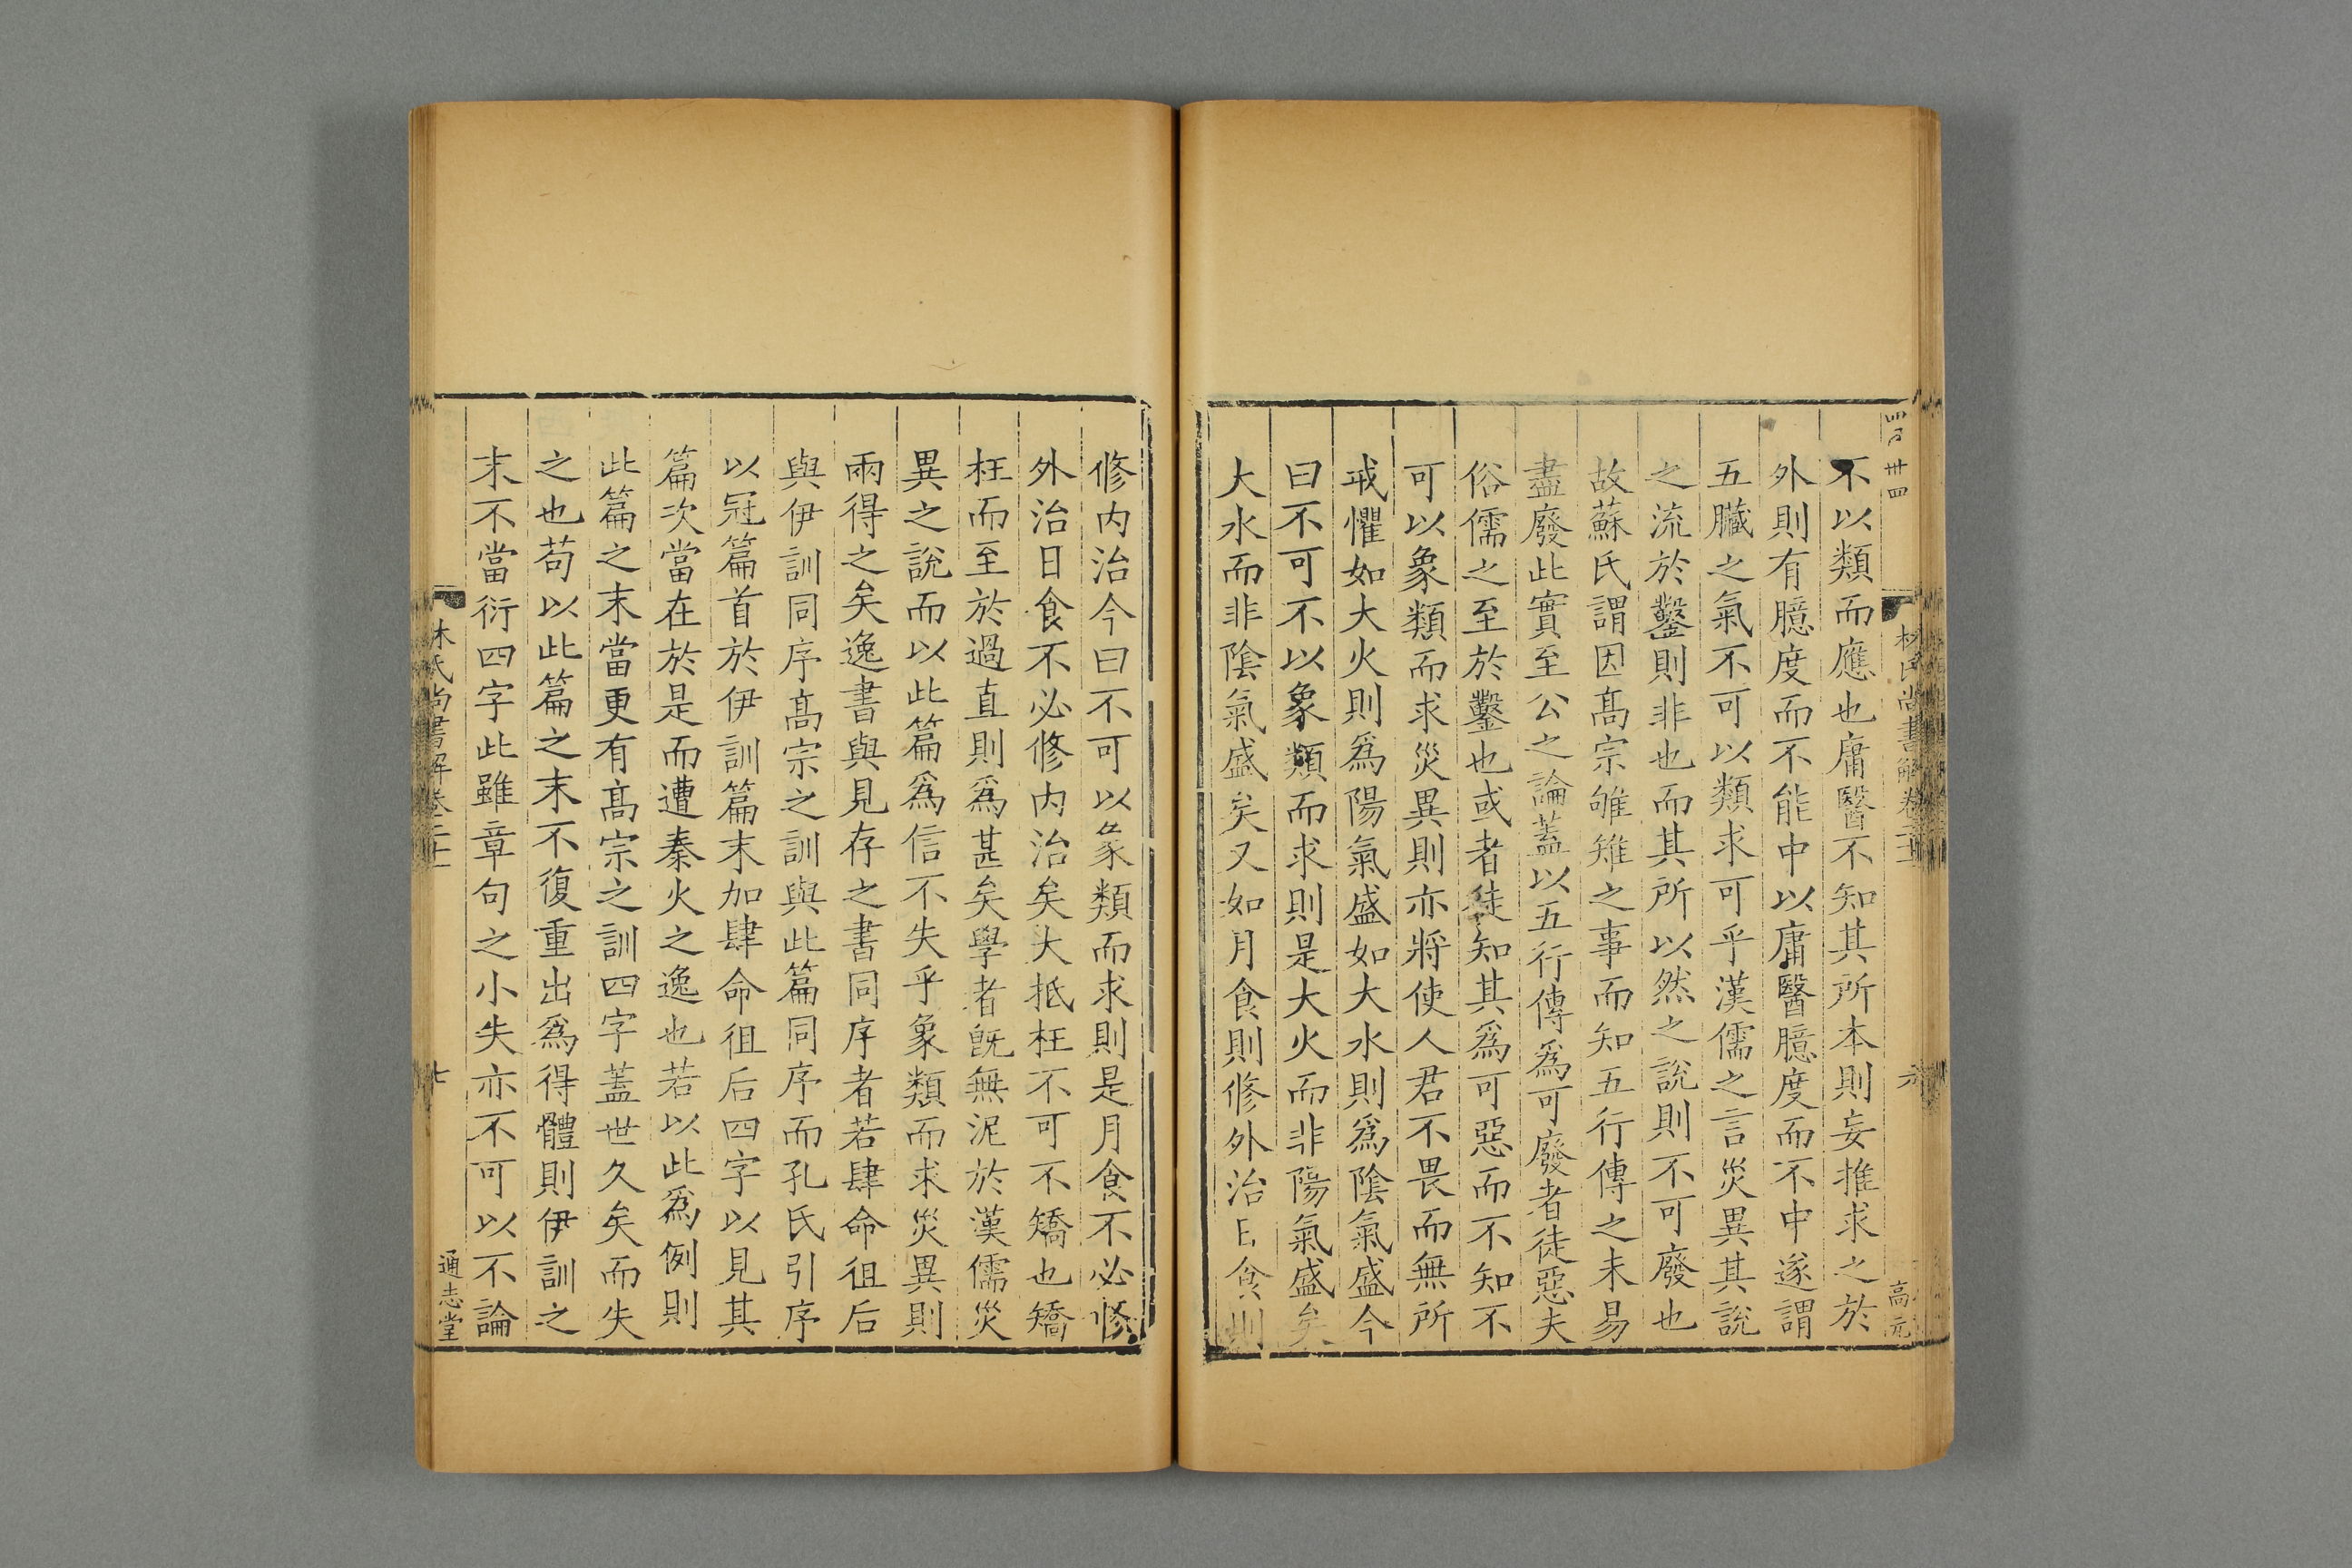 不以類而應也庸醫不知其所本則妄推求之於
外則有臆度而不能中以庸醫臆度而不中遂謂
五臟之氣不可以類求可乎漢儒之言災異其說
之流於鑿則非也而其所以然之說則不可廢也
故蘇氏謂因髙宗雊雉之事而知五行傳之未易
盡廢此實至公之論蓋以五行傳爲可廢者徒惡夫
俗儒之至於鑿也或者徒知其爲可惡而不知不
可以象類而求災異則亦將使人君不畏而無所
戒懼如大火則爲陽氣盛如大水則爲陰氣盛今
曰不可不以象類而求則是大火而非陽氣盛矣
大水而非陰氣盛矣又如月食則修外治日食則
修内治今曰不可以象類而求則是月食不必修
外治日食不必修内治矣大抵枉不可不矯也矯
枉而至於過直則爲甚矣學者旣無泥於漢儒災
異之說而以此篇爲信不失乎象類而求災異則
兩得之矣逸書與見存之書同序者若肆命徂后
與伊訓同序髙宗之訓與此篇同序而孔氏引序
以冠篇首於伊訓篇末加肆命徂后四字以見其
篇次當在於是而遭秦火之逸也若以此爲例則
此篇之末當更有髙宗之訓四字蓋世久矣而失
之也苟以此篇之末不復重出爲得體則伊訓之
末不當衍四字此雖章句之小失亦不可以不論
林氏尚書解卷二十
六
高元
林氏尚書解卷二十
七
通志堂